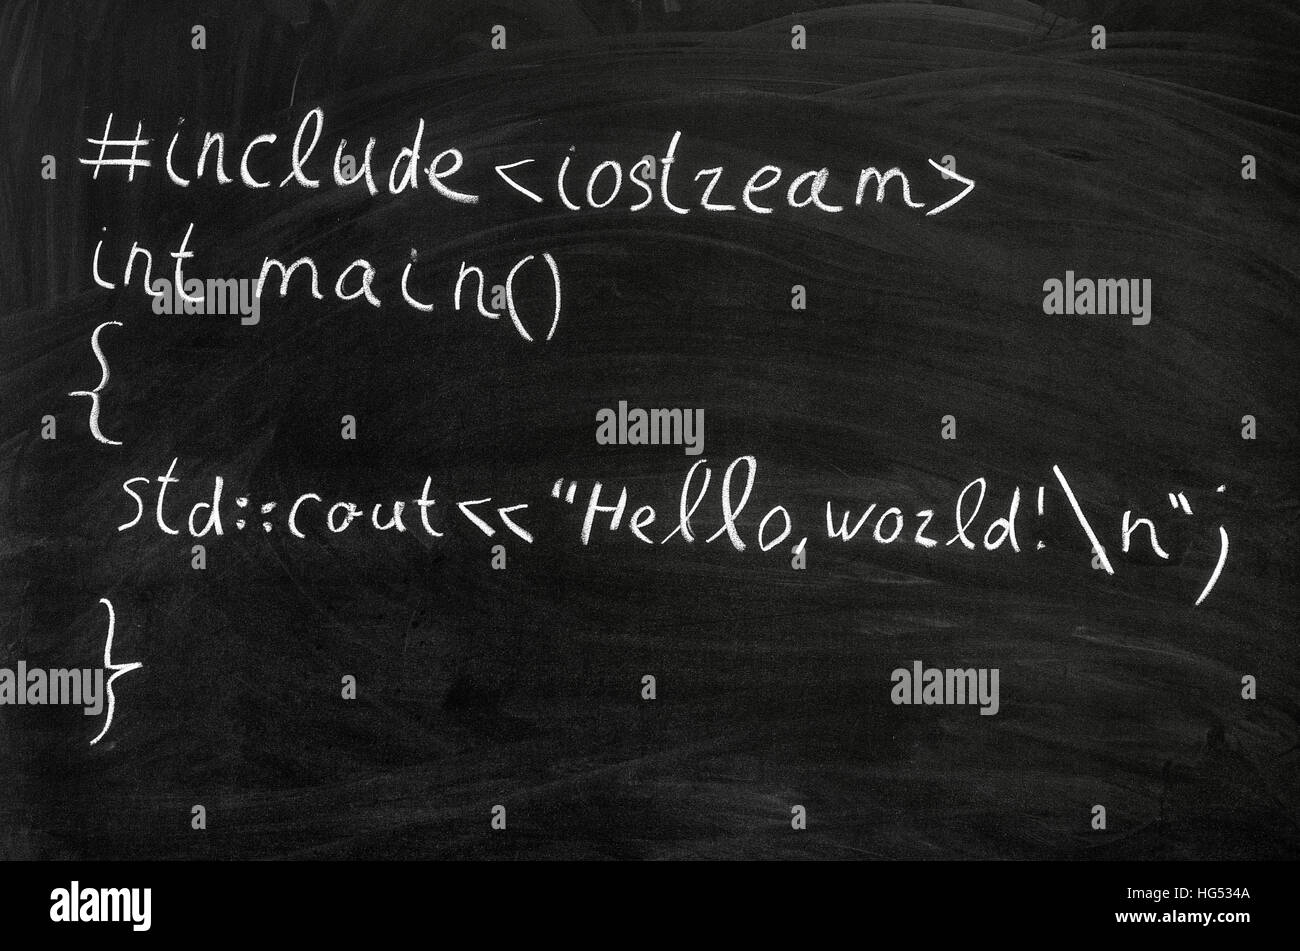 #include <iostream>
int main()
{
std::cout<<"Hello, world!\n";
}
alamy
alamy
alamy
alamy
Image ID: HG534A
www.alamy.com